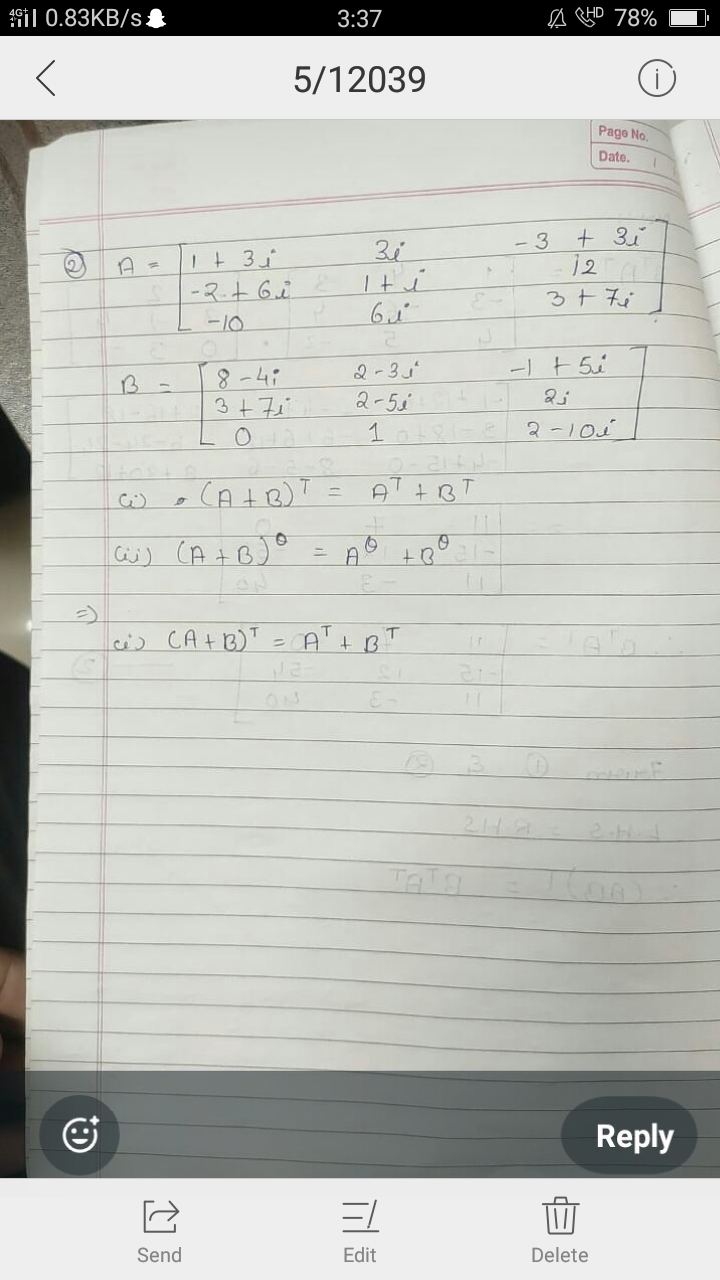 4G+ 0.83KB/s 3:37 HD 78%
5/12039
Page No.
Date.
② A = [ 1 + 3i 3i -3 + 3i
-2 + 6i 1 + i 12
-10 6i 3 + 7i ]
B = [ 8 - 4i 2 - 3i -1 + 5i
3 + 7i 2 - 5i 2i
0 1 2 - 10i ]
(i) (A + B)ᵀ = Aᵀ + Bᵀ
(ii) (A + B)^θ = A^θ + B^θ
=>
(i) (A + B)ᵀ = Aᵀ + Bᵀ
Reply
Send Edit Delete